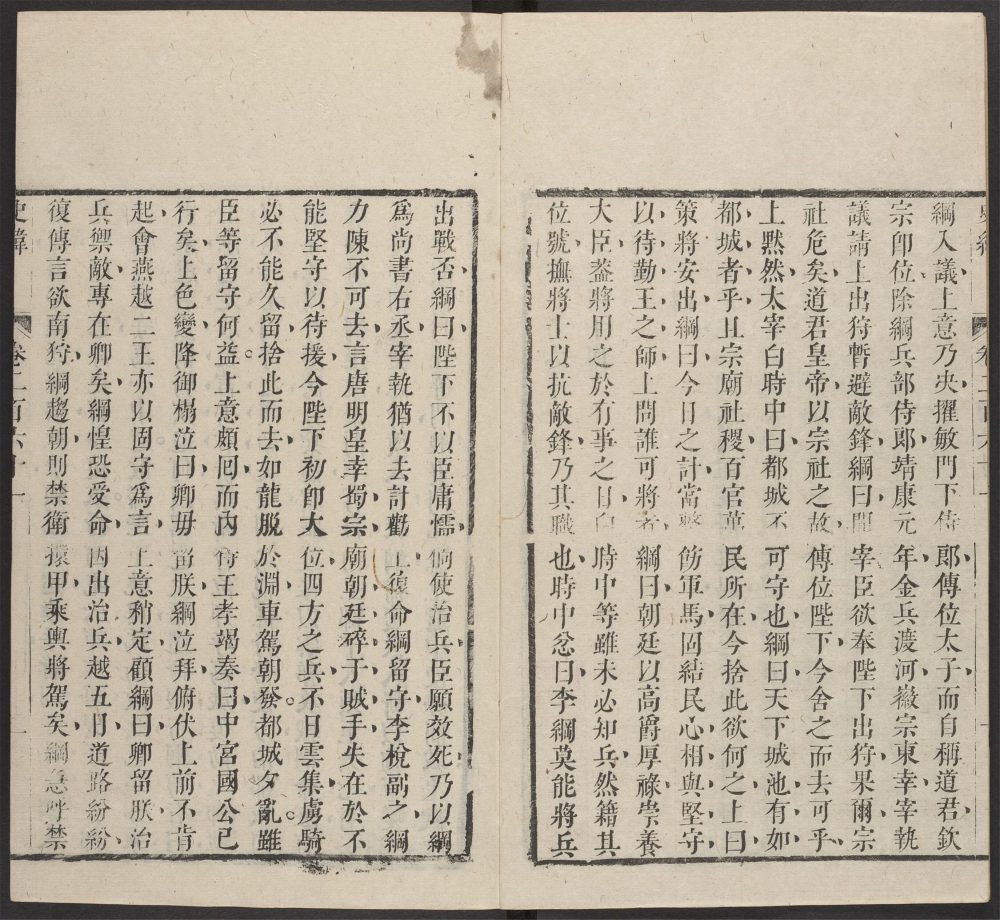 綱入議上意乃决擢敏門下侍郎傳位太子而自稱道君欽
宗卽位除綱兵部侍郎靖康元年金兵渡河徽宗東幸宰執
議請上出狩暫避敵鋒綱曰聞宰臣欲奉陛下出狩果爾宗
社危矣道君皇帝以宗社之故傳位陛下今舍之而去可乎
上黙然太宰白時中曰都城不可守也綱曰天下城池有如
都城者乎且宗廟社稷百官萬民所在今捨此欲何之上曰
策將安出綱曰今日之計當整飭軍馬固結民心相與堅守
以待勤王之師上問誰可將者綱曰朝廷以高爵厚祿崇養
大臣葢將用之於有事之日白時中等雖未必知兵然籍其
位號撫將士以抗敵鋒乃其職也時中忿曰李綱莫能將兵
出戰否綱曰陛下不以臣庸懦倘使治兵臣願效死乃以綱
爲尚書右丞宰執猶以去計勸上復命綱留守李梲副之綱
力陳不可去言唐明皇幸蜀宗廟朝廷碎于賊手失在於不
能堅守以待援今陛下初卽大位四方之兵不日雲集虜騎
必不能久留捨此而去如龍脫於淵車駕朝發都城夕亂雖
臣等留守何益上意頗囘而內侍王孝竭奏曰中宮國公已
行矣上色變降御榻泣曰卿毋留朕綱泣拜俯伏上前不肯
起會燕越二王亦以固守爲言上意稍定顧綱曰卿留朕治
兵禦敵專在卿矣綱惶恐受命因出治兵越五日道路紛紛
復傳言欲南狩綱趨朝則禁衛擐甲乘輿將駕矣綱急呼禁
史緯 卷二百六十一 一